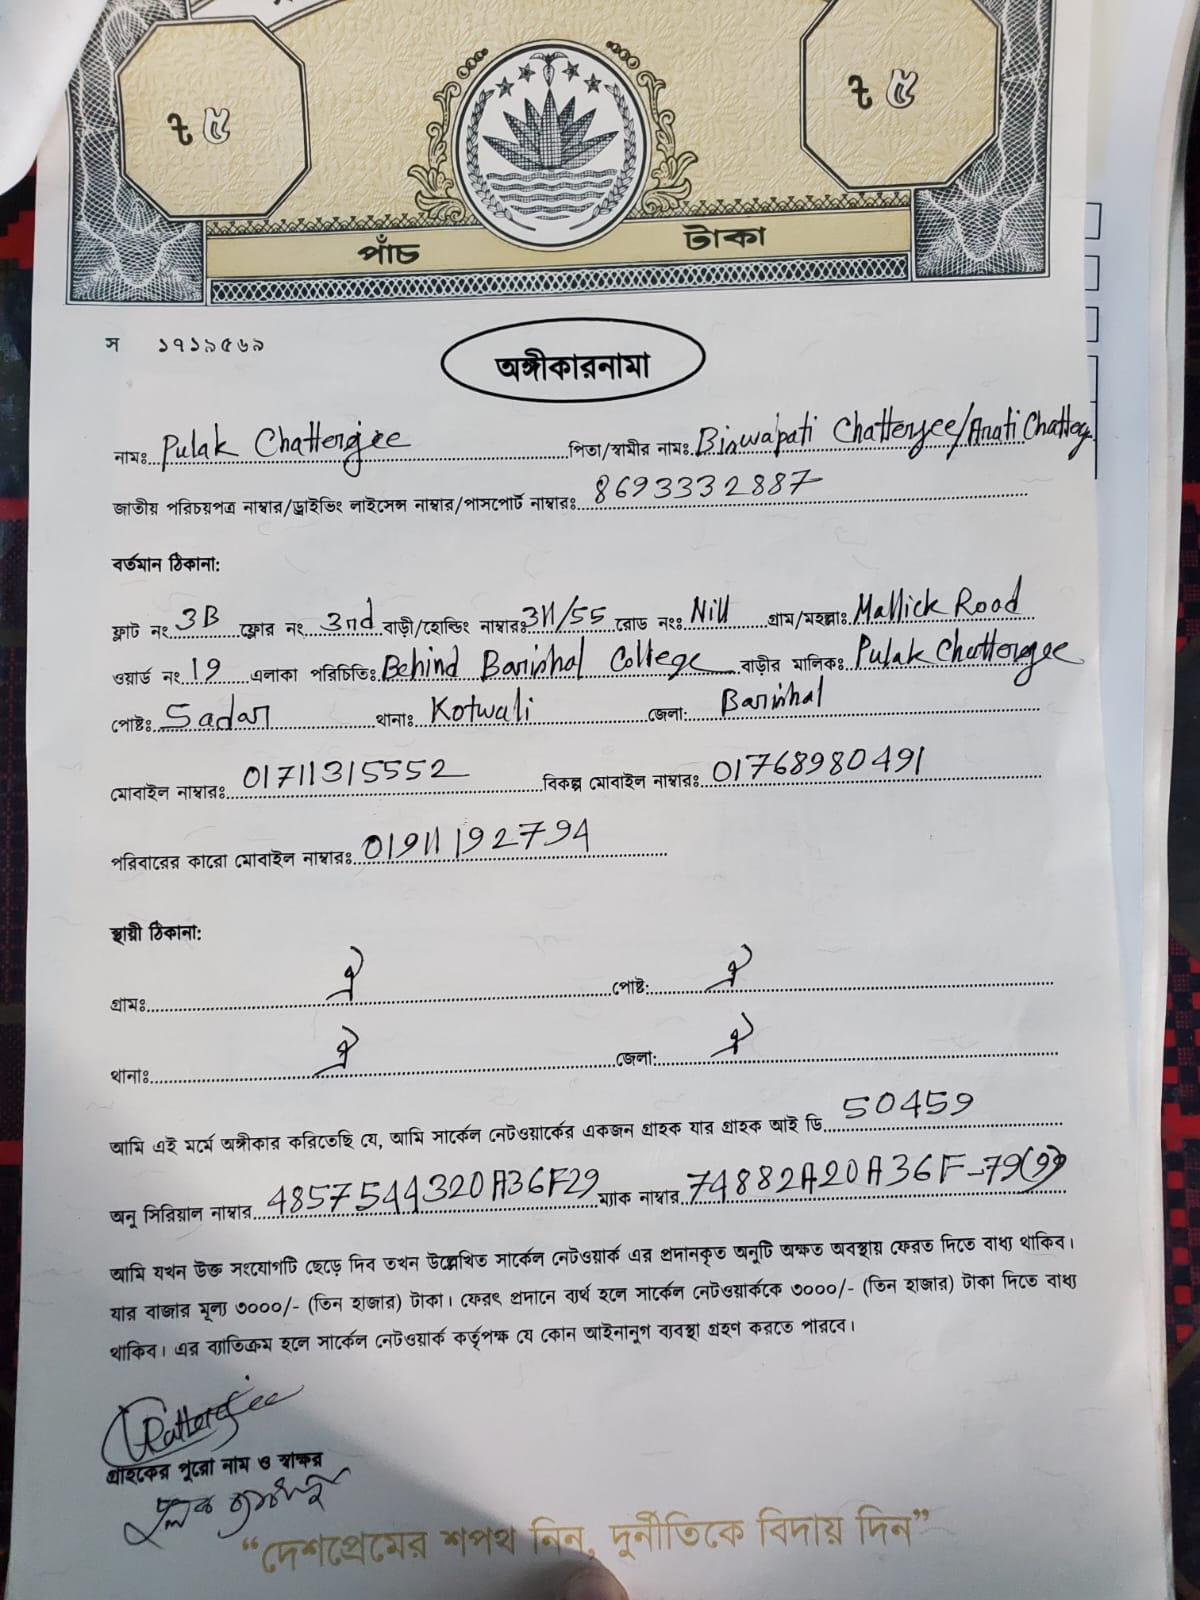 ৳ ৫ ৳ ৫
পাঁচ টাকা
স ১৭১৯৫৬৯
অঙ্গীকারনামা
নামঃ Pulak Chatterjee পিতা/স্বামীর নামঃ Biswapati Chatterjee/Arati
জাতীয় পরিচয়পত্র নাম্বার/ড্রাইভিং লাইসেন্স নাম্বার/পাসপোর্ট নাম্বারঃ 8693332887
বর্তমান ঠিকানা:
ফ্লাট নং 3B ফ্লোর নং 3nd বাড়ী/হোল্ডিং নাম্বারঃ 311/55 রোড নংঃ Nill গ্রাম/মহল্লাঃ Mallick Road
ওয়ার্ড নং 19 এলাকা পরিচিতিঃ Behind Barishal College বাড়ীর মালিকঃ Pulak Chatterjee
পোষ্টঃ Sadar থানাঃ Kotwali জেলা: Barishal
মোবাইল নাম্বারঃ 01711315552 বিকল্প মোবাইল নাম্বারঃ 01768980491
পরিবারের কারো মোবাইল নাম্বারঃ 01911192794
স্থায়ী ঠিকানা:
গ্রামঃ ঐ পোষ্ট: ঐ
থানাঃ ঐ জেলা: ঐ
আমি এই মর্মে অঙ্গীকার করিতেছি যে, আমি সার্কেল নেটওয়ার্কের একজন গ্রাহক যার গ্রাহক আই ডি 50459
অনু সিরিয়াল নাম্বার 4857544320A36F29 ম্যাক নাম্বার 74882A20A36F-79(9)
আমি যখন উক্ত সংযোগটি ছেড়ে দিব তখন উল্লেখিত সার্কেল নেটওয়ার্ক এর প্রদানকৃত অনুটি অক্ষত অবস্থায় ফেরত দিতে বাধ্য থাকিব।
যার বাজার মূল্য ৩০০০/- (তিন হাজার) টাকা। ফেরৎ প্রদানে ব্যর্থ হলে সার্কেল নেটওয়ার্ককে ৩০০০/- (তিন হাজার) টাকা দিতে বাধ্য
থাকিব। এর ব্যাতিক্রম হলে সার্কেল নেটওয়ার্ক কর্তৃপক্ষ যে কোন আইনানুগ ব্যবস্থা গ্রহণ করতে পারবে।
গ্রাহকের পুরো নাম ও স্বাক্ষর
"দেশপ্রেমের শপথ নিন, দুর্নীতিকে বিদায় দিন"